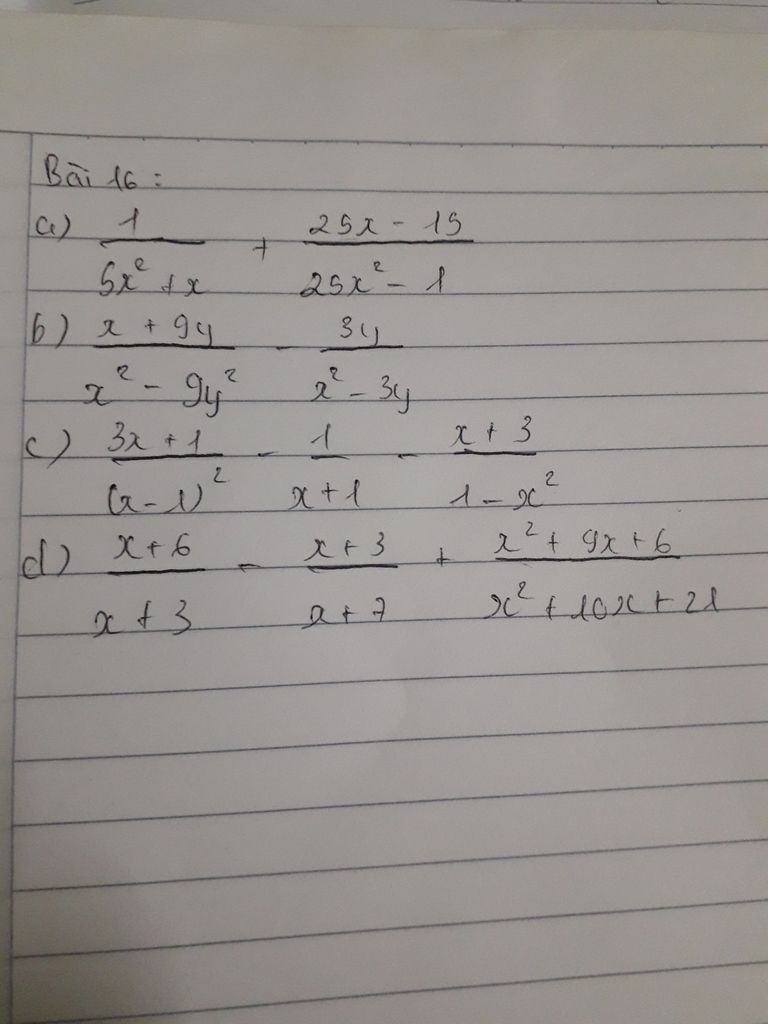 Bài 16:
a) 1 / (5x² + x) + (25x - 15) / (25x² - 1)
b) (x + 9y) / (x² - 9y²) - 3y / (x² - 3y)
c) (3x + 1) / (x - 1)² - 1 / (x + 1) - (x + 3) / (1 - x²)
d) (x + 6) / (x + 3) - (x + 3) / (x + 7) + (x² + 9x + 6) / (x² + 10x + 21)